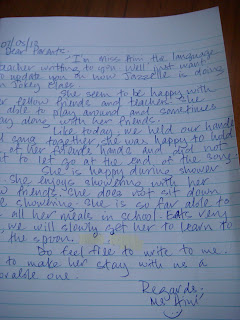 07/05/12
Dear Parents,
I'm Miss Ami the language
teacher writing to you. Well just want
to update you on how is doing
in class.
She seem to be happy with
her fellow friends and teacher. She
is able to play around and sometimes
play along with her friends.
Like today, we held our hands
and sang together, she was happy to hold
her friends hands and did not
want to let go at the end of the song.
She is happy during shower
She enjoys showering with her
friends. She does not sit down
showering. She is so far able to
all her meals in school. Eats very
we will slowly get her to learn to
the spoon.
Do feel free to write to me.
to make her stay with us a
one.
Regards,
Ms Ami